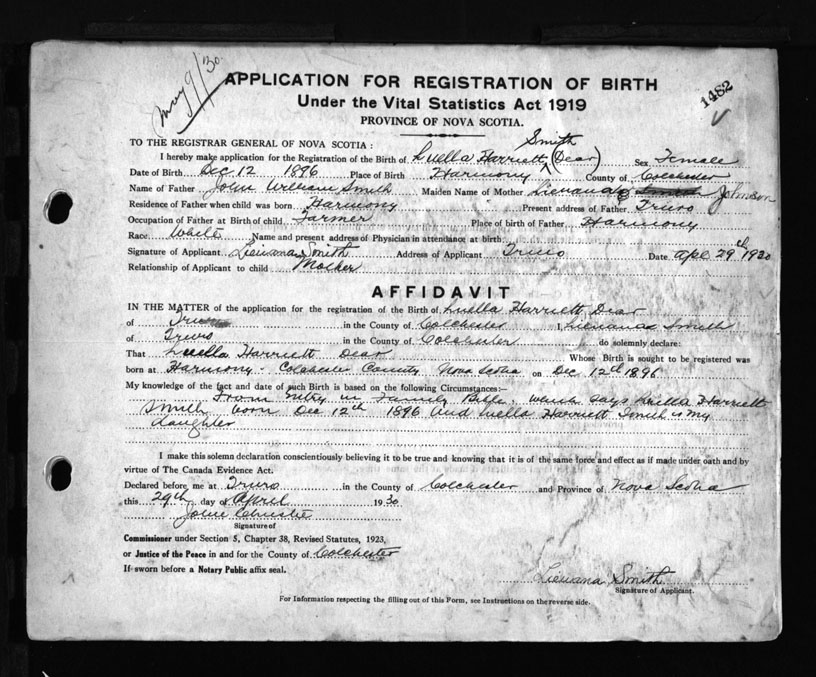 May 9/30
1482
APPLICATION FOR REGISTRATION OF BIRTH
Under the Vital Statistics Act 1919
PROVINCE OF NOVA SCOTIA.
TO THE REGISTRAR GENERAL OF NOVA SCOTIA:
Smith
I hereby make application for the Registration of the Birth of Luella Harriett (Dear) Sex Female
Date of Birth Dec 12 1896 Place of Birth Harmony County of Colchester
Name of Father John William Smith Maiden Name of Mother Johnson
Residence of Father when child was born Harmony Present address of Father Truro
Occupation of Father at Birth of child Farmer Place of birth of Father Harmony
Race White Name and present address of Physician in attendance at birth
Signature of Applicant Lieuana Smith Address of Applicant Truro Date Apl 29th 1930
Relationship of Applicant to child Mother
AFFIDAVIT
IN THE MATTER of the application for the registration of the Birth of Luella Harriett Dear
of Truro in the County of Colchester I, Lieuana Smith
of Truro in the County of Colchester do solemnly declare:
That Luella Harriett Dear Whose Birth is sought to be registered was
born at Harmony - Colchester County Nova Scotia on Dec 12th 1896
My knowledge of the fact and date of such Birth is based on the following Circumstances:—
From Entry in Family Bible. which says Luella Harriett
Smith born Dec 12th 1896 and Luella Harriett Smith is my
daughter
I make this solemn declaration conscientiously believing it to be true and knowing that it is of the same force and effect as if made under oath and by
virtue of The Canada Evidence Act.
Declared before me at Truro in the County of Colchester and Province of Nova Scotia
this 29th day of April 1930
John Christie
Signature of
Commissioner under Section 5, Chapter 38, Revised Statutes, 1923,
or Justice of the Peace in and for the County of Colchester
If sworn before a Notary Public affix seal.
Lieuana Smith
Signature of Applicant.
For Information respecting the filling out of this Form, see Instructions on the reverse side.